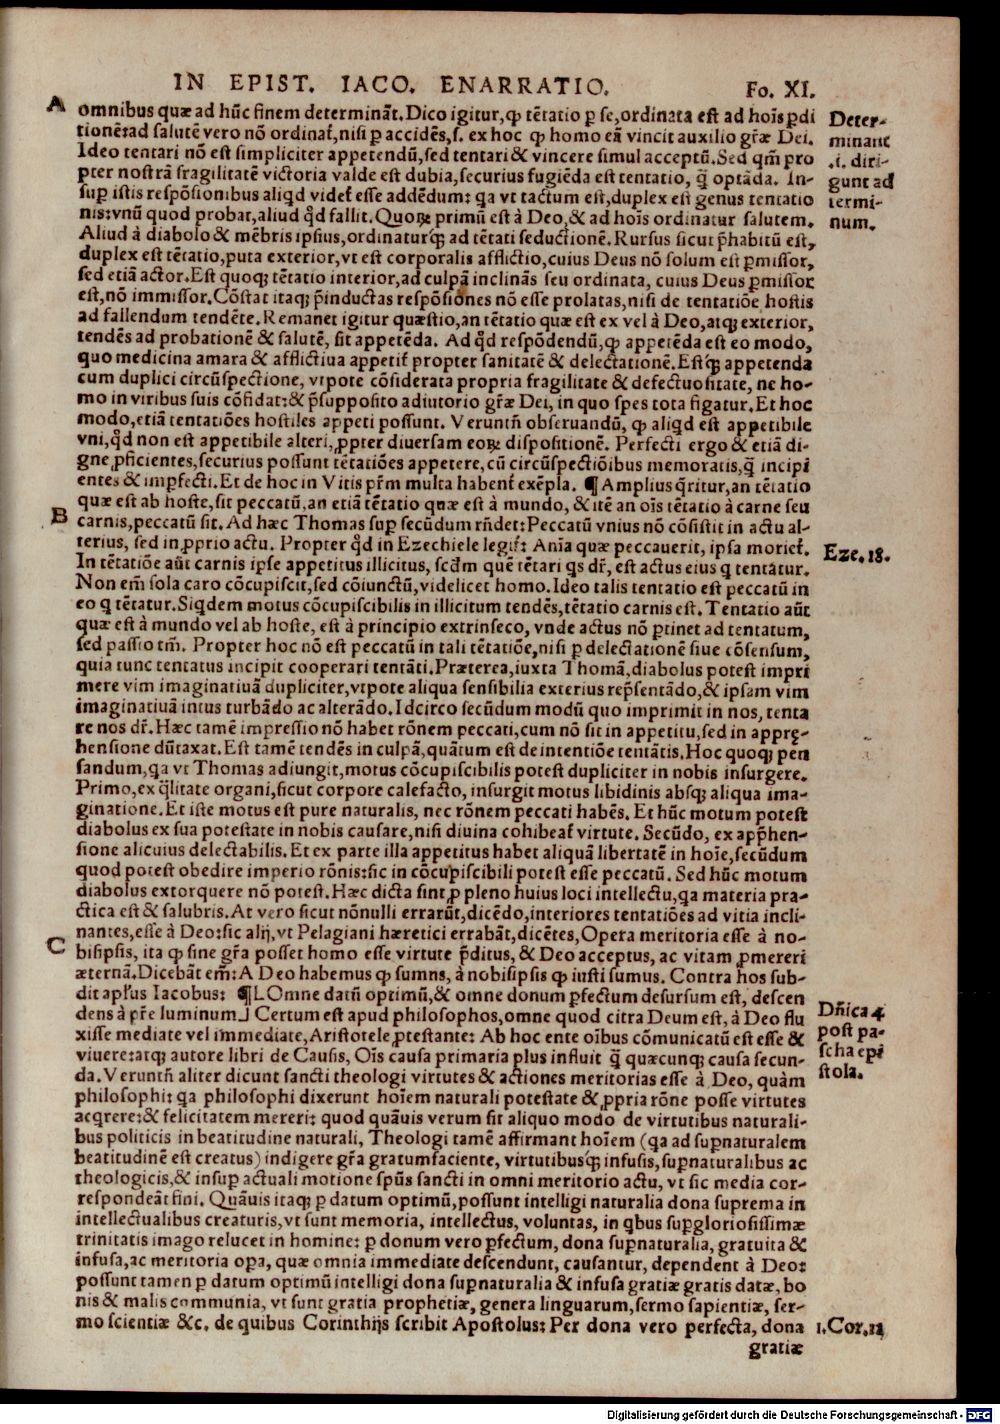 IN EPIST. IACO. ENARRATIO.
Fo. XI.
A
omnibus quæ ad hūc finem determināt. Dico igitur, ꝙ tētatio ꝑ se, ordinata est ad hoīs ꝑdi
tionē: ad salutē vero nō ordinat᷑, nisi ꝑ accidēs, s. ex hoc ꝙ homo eā vincit auxilio gr̄æ Dei.
Ideo tentari nō est simpliciter appetendū, sed tentari & vincere simul acceptū. Sed qm̄ pro
pter nostrā fragilitatē victoria valde est dubia, securius fugiēda est tentatio, q̄̄ optāda. In-
suꝑ istis respōsionibus aliqd videt᷑ esse addēdum: qa vt tactum est, duplex est genus tentatio
nis: vnū quod probat, aliud qd̄ fallit. Quoꝝ primū est à Deo, & ad hoīs ordinatur salutem.
Aliud à diabolo & mēbris ipsius, ordinaturq́ꝫ ad tētati seductionē. Rursus sicut p̄habitū est,
duplex est tētatio, puta exterior, vt est corporalis afflictio, cuius Deus nō solum est ꝑmissor,
sed etiā actor. Est quoqꝫ tētatio interior, ad culpā inclināns seu ordinata, cuius Deus ꝑmissor
est, nō immissor. Cōstat itaqꝫ p̄inductas respōsiones nō esse prolatas, nisi de tentatiōe hostis
ad fallendum tendēte. Remanet igitur quæstio, an tētatio quæ est ex vel à Deo, atqꝫ exterior,
tendēs ad probationē & salutē, sit appetēda. Ad qd̄ respōdendū, ꝙ appetēda est eo modo,
quo medicina amara & afflictiua appetit᷑ propter sanitatē & delectationē. Estq́ꝫ appetenda
cum duplici circūspectione, vtpote cōsiderata propria fragilitate & defectuositate, ne ho-
mo in viribus suis cōfidat: & p̄supposito adiutorio gr̄æ Dei, in quo spes tota figatur. Et hoc
modo, etiā tentatiōes hostiles appeti possunt. Veruntn̄ obseruandū, ꝙ aliqd est appetibile
vni, qd̄ non est appetibile alteri, ꝓpter diuersam eoꝝ dispositionē. Perfecti ergo & etiā di-
gne ꝓficientes, securius possunt tētatiōes appetere, cū circūspectiōibus memoratis, q̄̄ incipi
entes & imꝑfecti. Et de hoc in Vitis pr̄m multa habent᷑ exēpla. ¶ Amplius q̄ritur, an tētatio
B
quæ est ab hoste, sit peccatū, an etiā tētatio quæ est à mundo, & itē an oīs tētatio à carne seu
carnis, peccatū sit. Ad hæc Thomas suꝑ secūdum rn̄det: Peccatū vnius nō cōsistit in actu al-
terius, sed in ꝓprio actu. Propter qd̄ in Ezechiele legit᷑: Anīa quæ peccauerit, ipsa moriet᷑.
Eze. 18.
In tētatiōe aūt carnis ipse appetitus illicitus, scd̄m quē tētari qs dr̄, est actus eius q tentatur.
Non em̄ sola caro cōcupiscit, sed cōiunctū, videlicet homo. Ideo talis tentatio est peccatū in
eo q tētatur. Siqdem motus cōcupiscibilis in illicitum tendēs, tētatio carnis est. Tentatio aūt
quæ est à mundo vel ab hoste, est à principio extrinseco, vnde actus nō ꝑtinet ad tentatum,
sed passio tm̄. Propter hoc nō est peccatū in tali tētatiōe, nisi ꝑ delectationē siue cōsensum,
quia tunc tentatus incipit cooperari tentāti. Præterea, iuxta Thomā, diabolus potest impri
mere vim imaginatiuā dupliciter, vtpote aliqua sensibilia exterius rep̄sentādo, & ipsam vim
imaginatiuā intus turbādo ac alterādo. Idcirco secūdum modū quo imprimit in nos, tenta
re nos dr̄. Hæc tamē impressio nō habet rōnem peccati, cum nō sit in appetitu, sed in apprę-
hensione dūtaxat. Est tamē tendēs in culpā, quātum est de intentiōe tentātis. Hoc quoqꝫ pen
sandum, qa vt Thomas adiungit, motus cōcupiscibilis potest dupliciter in nobis insurgere.
Primo, ex q̄litate organi, sicut corpore calefacto, insurgit motus libidinis absqꝫ aliqua ima-
ginatione. Et iste motus est pure naturalis, nec rōnem peccati habēs. Et hūc motum potest
diabolus ex sua potestate in nobis causare, nisi diuina cohibeat᷑ virtute. Secūdo, ex app̄hen-
sione alicuius delectabilis. Et ex parte illa appetitus habet aliquā libertatē in hoīe, secūdum
quod potest obedire imperio rōnis: sic in cōcupiscibili potest esse peccatū. Sed hūc motum
diabolus extorquere nō potest. Hæc dicta sint ꝓ pleno huius loci intellectu, qa materia pra-
ctica est & salubris. At vero sicut nōnulli errarūt, dicēdo, interiores tentatiōes ad vitia incli-
nantes, esse à Deo: sic alij, vt Pelagiani hæretici errabāt, dicētes, Opera meritoria esse à no-
C
bisipsis, ita ꝙ sine gr̄a posset homo esse virtute p̄ditus, & Deo acceptus, ac vitam ꝓmereri
æternā. Dicebāt em̄: A Deo habemus ꝙ sumus, à nobisipsis ꝙ iusti sumus. Contra hos sub-
dit apl̄us Iacobus: ¶ [Omne datū optimū, & omne donum ꝑfectum desursum est, descen
dens à pr̄e luminum] Certum est apud philosophos, omne quod citra Deum est, à Deo flu
xisse mediate vel immediate, Aristotele ꝓtestante: Ab hoc ente oībus cōmunicatū est esse &
viuere: atqꝫ autore libri de Causis, Oīs causa primaria plus influit q̄̄ quæcunqꝫ causa secun-
da. Veruntn̄ aliter dicunt sancti theologi virtutes & actiones meritorias esse à Deo, quàm
philosophi: qa philosophi dixerunt hoīem naturali potestate & ꝓpria rōne posse virtutes
acqrere: & felicitatem mereri: quod quāuis verum sit aliquo modo de virtutibus naturali-
bus politicis in beatitudine naturali, Theologi tamē affirmant hoīem (qa ad suꝑnaturalem
beatitudinē est creatus) indigere gr̄a gratumfaciente, virtutibusq́ꝫ infusis, suꝑnaturalibus ac
theologicis, & insuꝑ actuali motione spūs sancti in omni meritorio actu, vt sic media cor-
respondeāt fini. Quāuis itaqꝫ ꝑ datum optimū, possunt intelligi naturalia dona suprema in
intellectualibus creaturis, vt sunt memoria, intellectus, voluntas, in qbus suꝑgloriosissimæ
trinitatis imago relucet in homine: ꝑ donum vero ꝑfectum, dona suꝑnaturalia, gratuita &
infusa, ac meritoria oꝑa, quæ omnia immediate descendunt, causantur, dependent à Deo:
possunt tamen ꝑ datum optimū intelligi dona suꝑnaturalia & infusa gratiæ gratis datæ, bo
nis & malis communia, vt sunt gratia prophetiæ, genera linguarum, sermo sapientiæ, ser-
mo scientiæ &c. de quibus Corinthijs scribit Apostolus: Per dona vero perfecta, dona
gratiæ
Deter-
minant
.i. diri-
gunt ad
termi-
num.
Dn̄ica 4.
post pa-
scha epi
stola.
1. Cor. 12
Digitalisierung gefördert durch die Deutsche Forschungsgemeinschaft - DFG